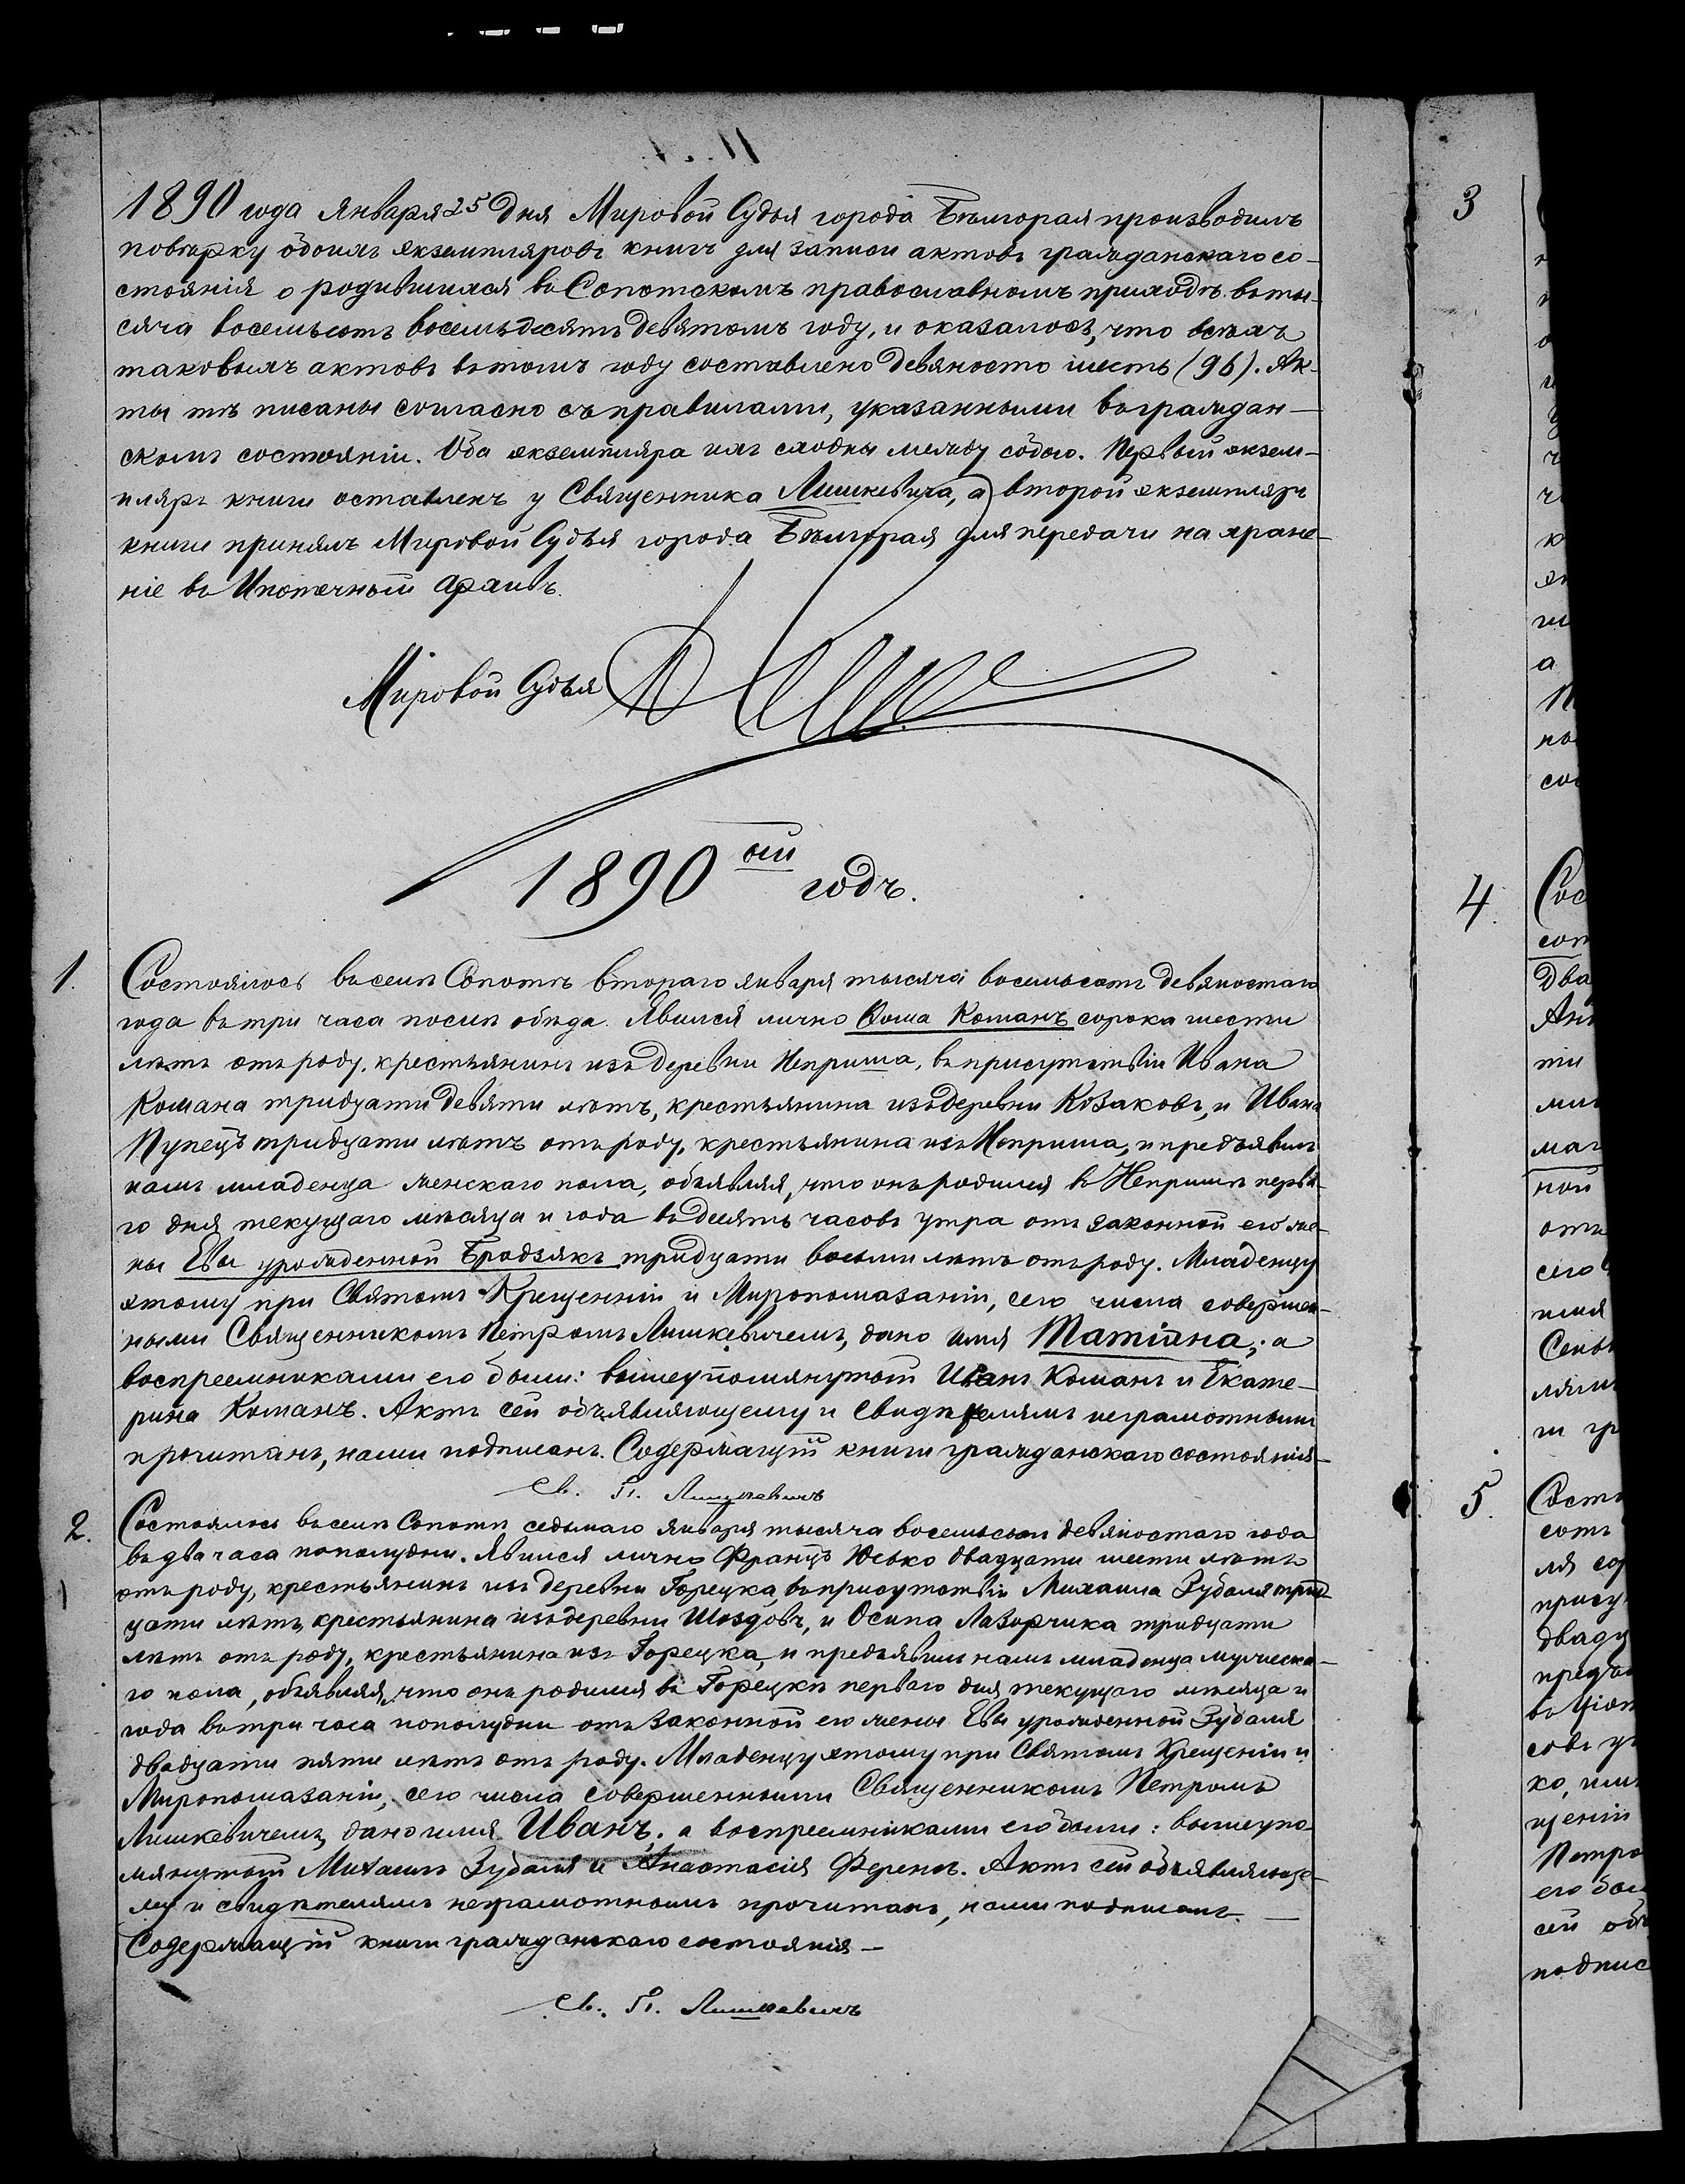 1890 года Января 25 Дня Мировой Судья города Бѣлгорая производилъ
повѣрку обоихъ экземпляровъ книгъ для записи актовъ гражданскаго со-
стоянія о родившихся въ Сопотскомъ православномъ приходѣ въ ты-
сяча восемьсотъ восемьдесятъ девятомъ году, и оказалось, что всѣхъ
таковыхъ актовъ въ томъ году составлено девяносто шесть (96). Ак-
ты тѣ писаны согласно съ правилами, указанными въ граждан-
скомъ состояніи. Оба экземпляра ихъ сходны между собою. Первый экзем-
пляръ книги оставленъ у Священника Лишкевича, а второй экземпляръ
книги принялъ Мировой Судья города Бѣлгорая для передачи на хране-
ніе въ Ипотечный Архивъ.
Мировой Судья
1890 ый годъ.
1. Состоялось въ селѣ Сопотѣ втораго января тысяча восемьсотъ девяностаго
года въ три часа послѣ обѣда. Явился лично Ѳома Команъ сорока шести
лѣтъ отъ роду, крестьянинъ изъ деревни Неприша, въ присутствіи Ивана
Комана тридцати девяти лѣтъ, крестьянина изъ деревни Козаковъ, и Ивана
Купецъ тридцати лѣтъ отъ роду, крестьянина изъ Неприша, и предъявилъ
намъ младенца женскаго пола, объявляя, что онъ родился въ Непришѣ перва-
го дня текущаго мѣсяца и года въ десять часовъ утра отъ законной его же-
ны Евы урожденной Бродзякъ тридцати восьми лѣтъ отъ роду. Младенцу
этому при Святомъ Крещеніи и Миропомазаніи, сего числа совершен-
ными Священникомъ Петромъ Лишкевичемъ, дано имя Татіана; а
воспреемниками его были: вышеупомянутый Иванъ Команъ и Екате-
рина Команъ. Актъ сей объявляющему и свидѣтелямъ неграмотнымъ
прочитанъ, нами подписанъ. Содержащій книги гражданскаго состоянія—
Св. П. Лишкевичъ
2. Состоялось въ селѣ Сопотѣ седьмаго января тысяча восемьсотъ девяностаго года
въ два часа пополудни. Явился лично Францъ Юсько двадцати шести лѣтъ
отъ роду, крестьянинъ изъ деревни Горецка, въ присутствіи Михаила Зубаля трид-
цати лѣтъ, крестьянина изъ деревни Шоздовъ, и Осипа Лазорчика тридцати
лѣтъ отъ роду, крестьянина изъ Горецка, и предъявилъ намъ младенца мужеска-
го пола, объявляя, что онъ родился въ Горецкѣ перваго дня текущаго мѣсяца и
года въ три часа пополудни отъ законной его жены Евы урожденной Зубаля
двадцати пяти лѣтъ отъ роду. Младенцу этому при Святомъ Крещеніи и
Миропомазаніи, сего числа совершенными Священникомъ Петромъ
Лишкевичемъ, дано имя Иванъ; а воспреемниками его были: вышеупо-
мянутый Михаилъ Зубаля и Анастасія Ференсъ. Актъ сей объявляюще-
му и свидѣтелямъ неграмотнымъ прочитанъ, нами подписанъ. —
Содержащій книги гражданскаго состоянія —
Св. П. Лишкевичъ
3
4.
5.